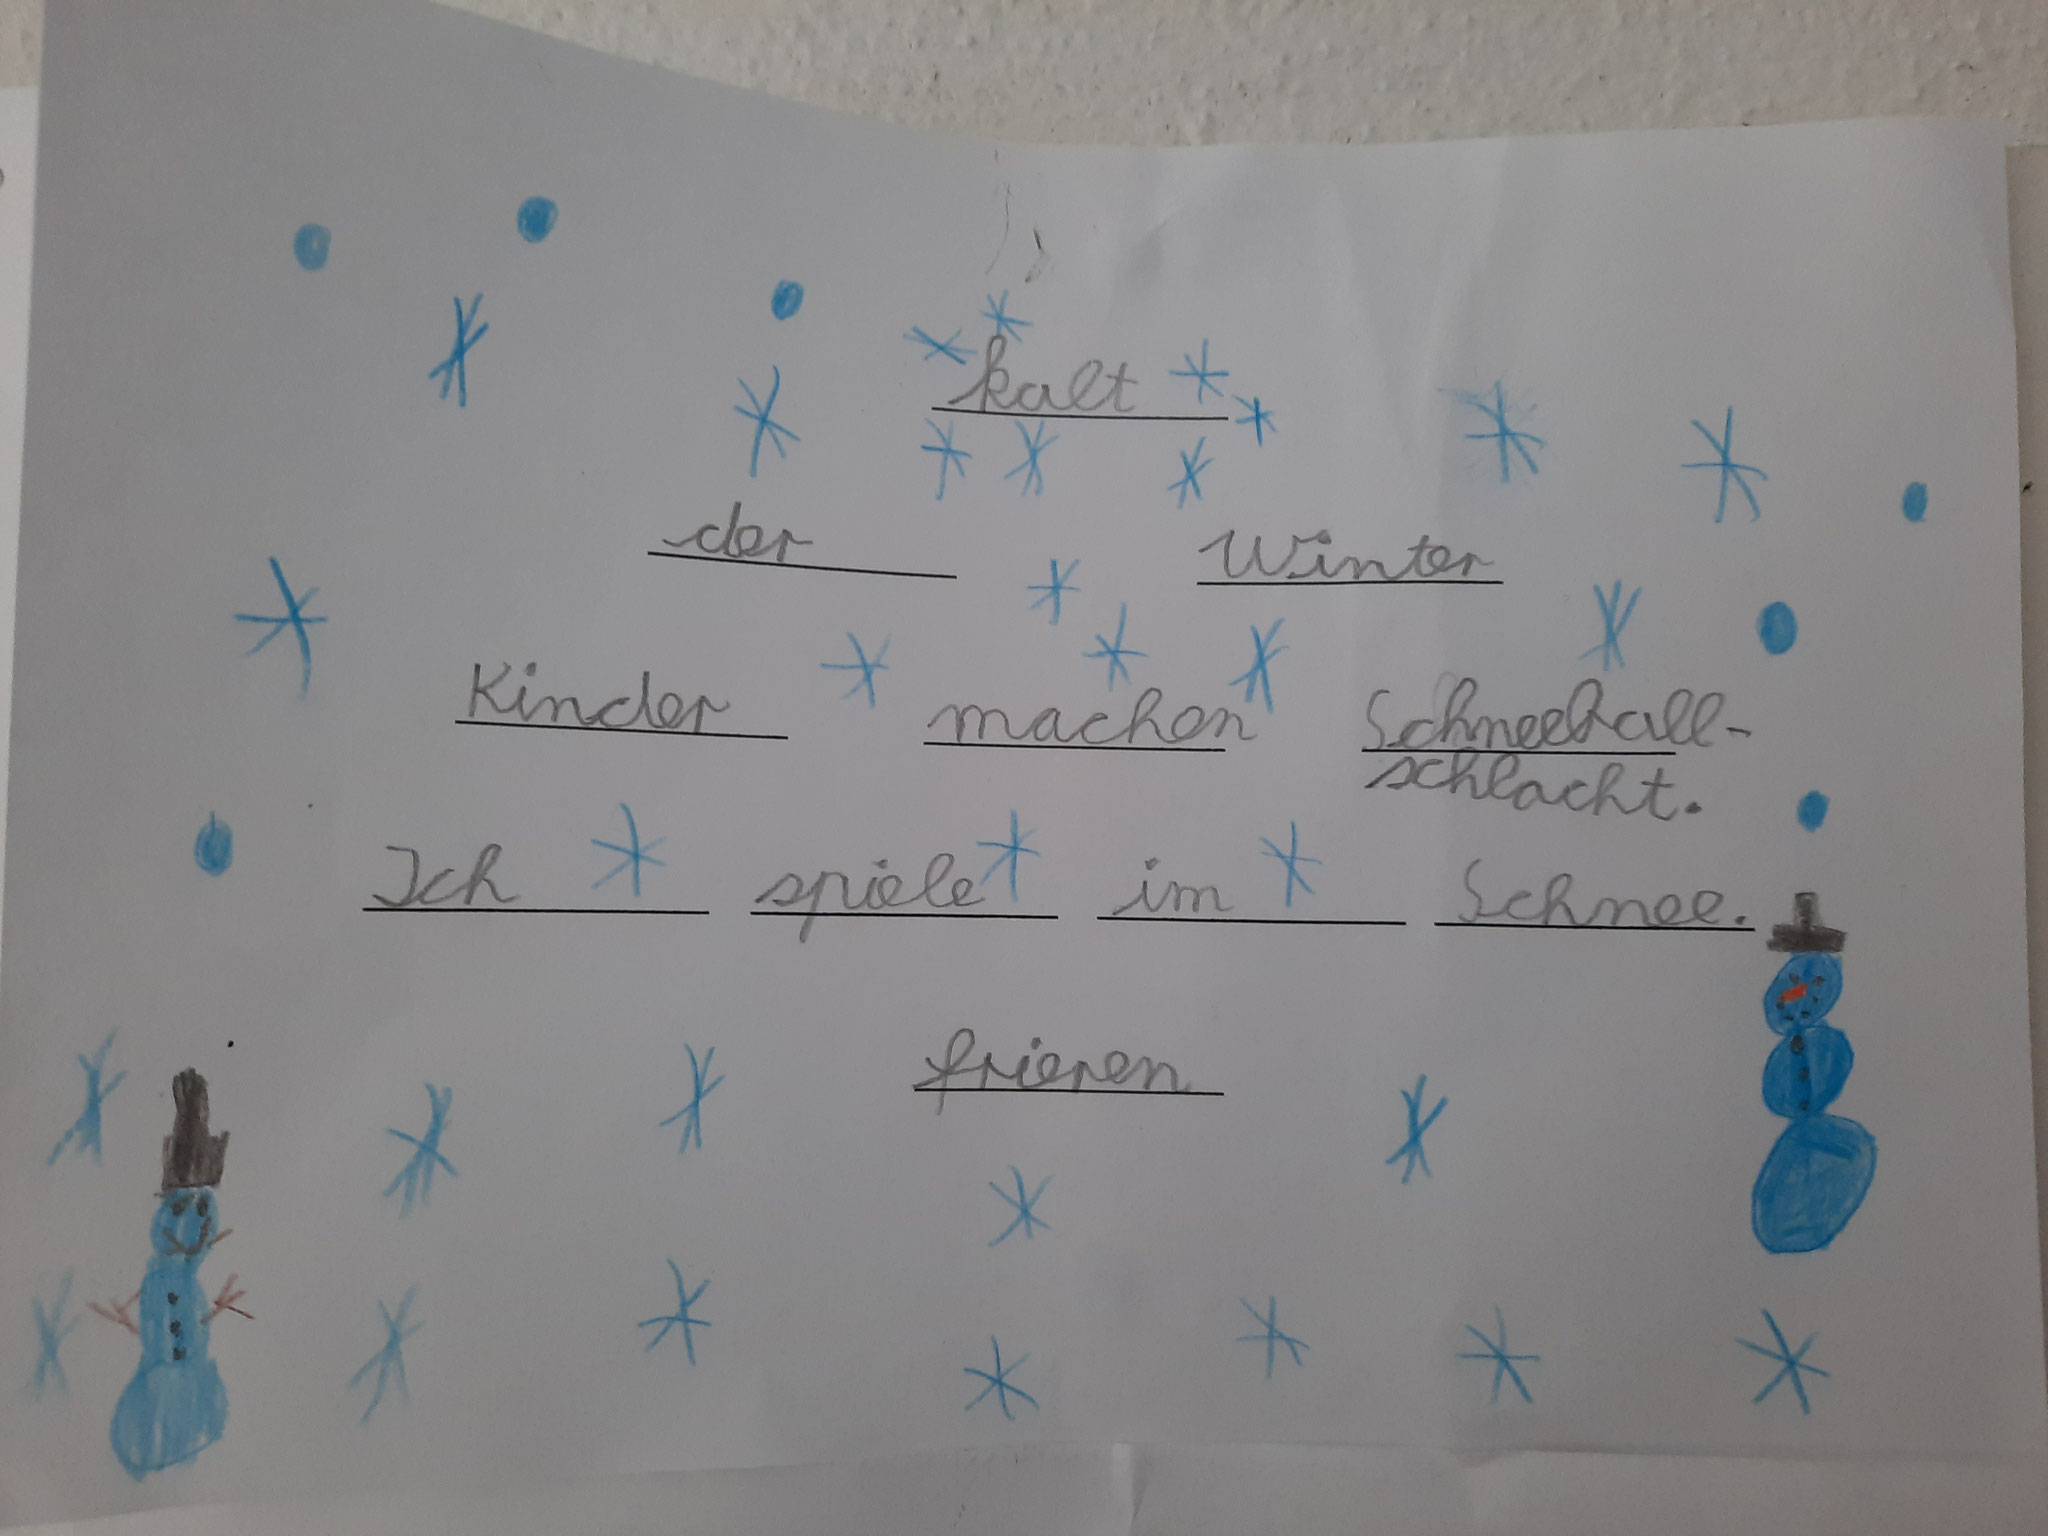 kalt
der Winter
Kinder machen Schneeball-
schlacht.
Ich spiele im Schnee.
frieren